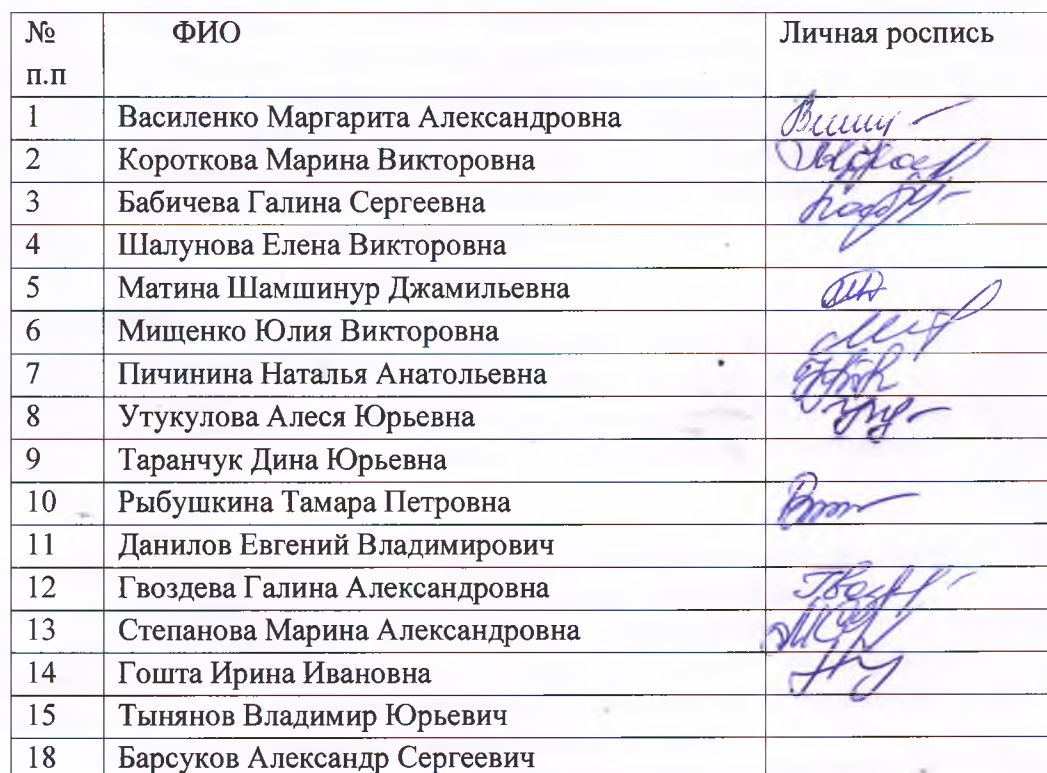 № п.п ФИО Личная роспись
1 Василенко Маргарита Александровна
2 Короткова Марина Викторовна
3 Бабичева Галина Сергеевна
4 Шалунова Елена Викторовна
5 Матина Шамшинур Джамильевна
6 Мищенко Юлия Викторовна
7 Пичинина Наталья Анатольевна
8 Утукулова Алеся Юрьевна
9 Таранчук Дина Юрьевна
10 Рыбушкина Тамара Петровна
11 Данилов Евгений Владимирович
12 Гвоздева Галина Александровна
13 Степанова Марина Александровна
14 Гошта Ирина Ивановна
15 Тынянов Владимир Юрьевич
18 Барсуков Александр Сергеевич